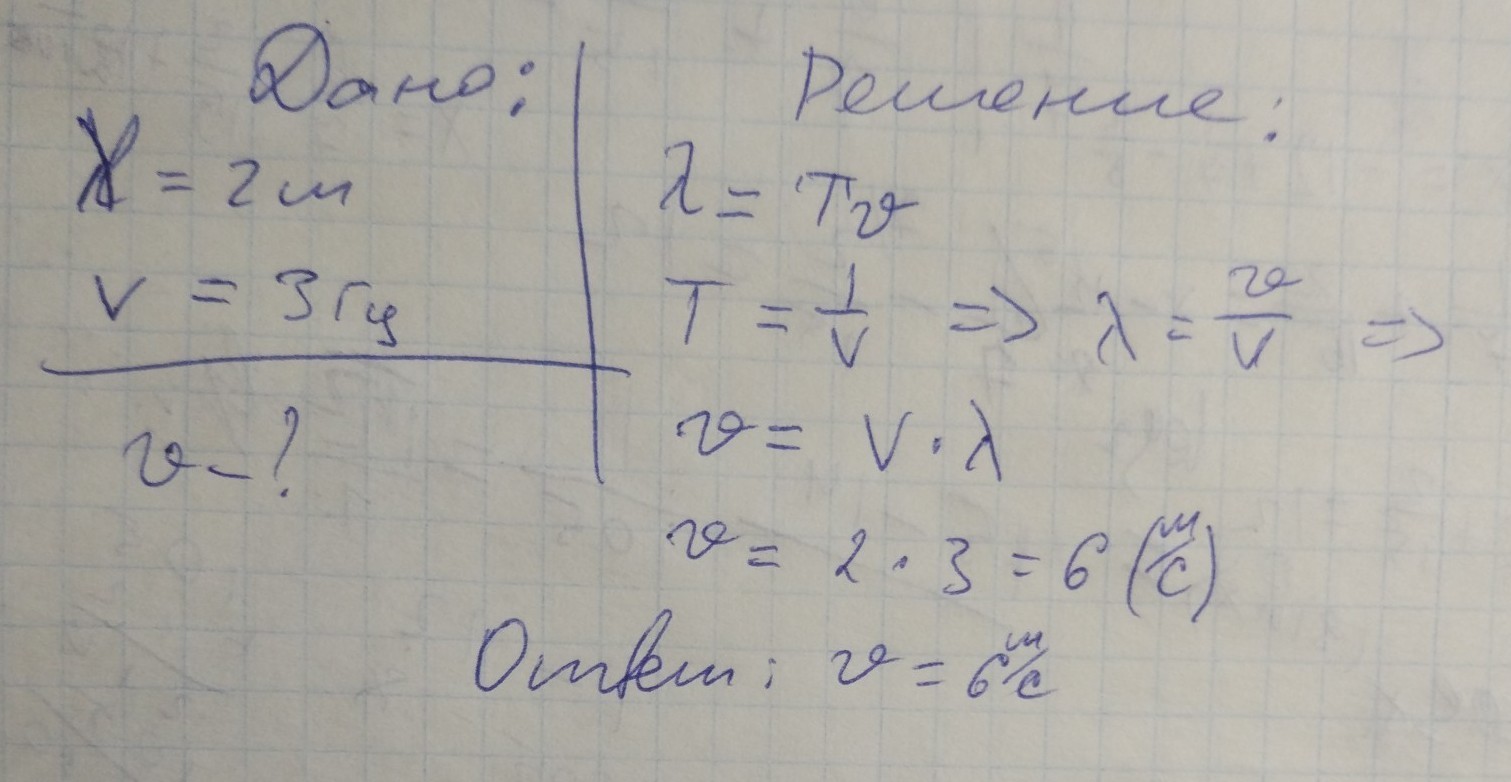 Дано:
λ = 2 м
ν = 3 Гц
υ - ?
Решение:
λ = Tυ
T = 1/ν => λ = υ/ν =>
υ = ν · λ
υ = 2 · 3 = 6 (м/с)
Ответ: υ = 6 м/с